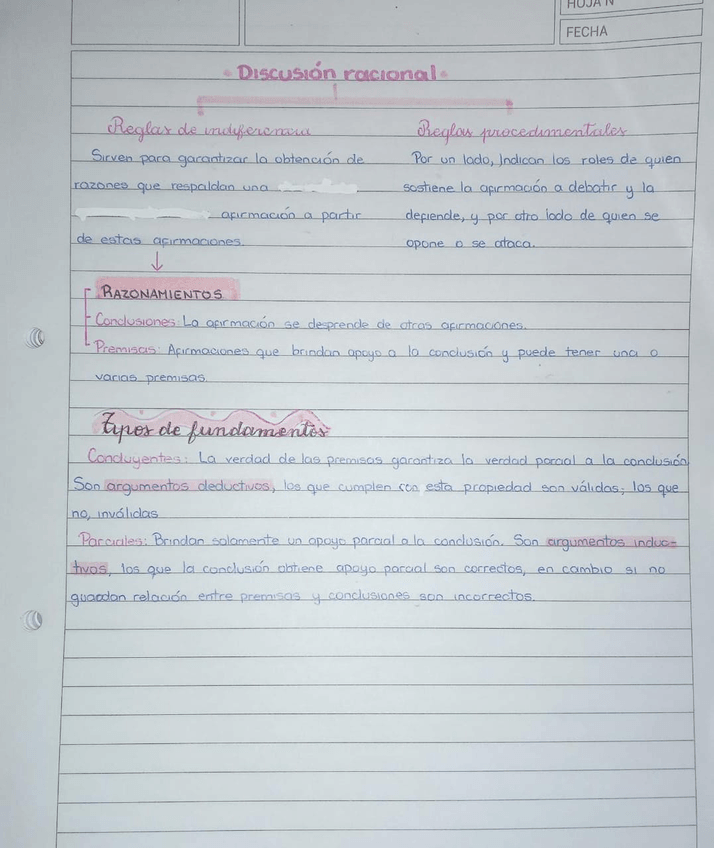 HOJA N
FECHA
• Discusión racional •
Reglas de indiferencia
Sirven para garantizar la obtención de
razones que respaldan una
afirmación a partir
de estas afirmaciones.
Reglas procedimentales
Por un lado, Indican los roles de quien
sostiene la afirmación a debatir y la
defiende, y por otro lado de quien se
opone o se ataca.
RAZONAMIENTOS
Conclusiones: La afirmación se desprende de otras afirmaciones.
Premisas: Afirmaciones que brindan apoyo a la conclusión y puede tener una o
varias premisas.
Tipos de fundamentos
Concluyentes: La verdad de las premisas garantiza la verdad parcial a la conclusión
Son argumentos deductivos, los que cumplen con esta propiedad son válidas; los que
no, inválidas
Parciales: Brindan solamente un apoyo parcial a la conclusión. Son argumentos induc-
tivos, los que la conclusión obtiene apoyo parcial son correctos, en cambio si no
guardan relación entre premisas y conclusiones son incorrectos.